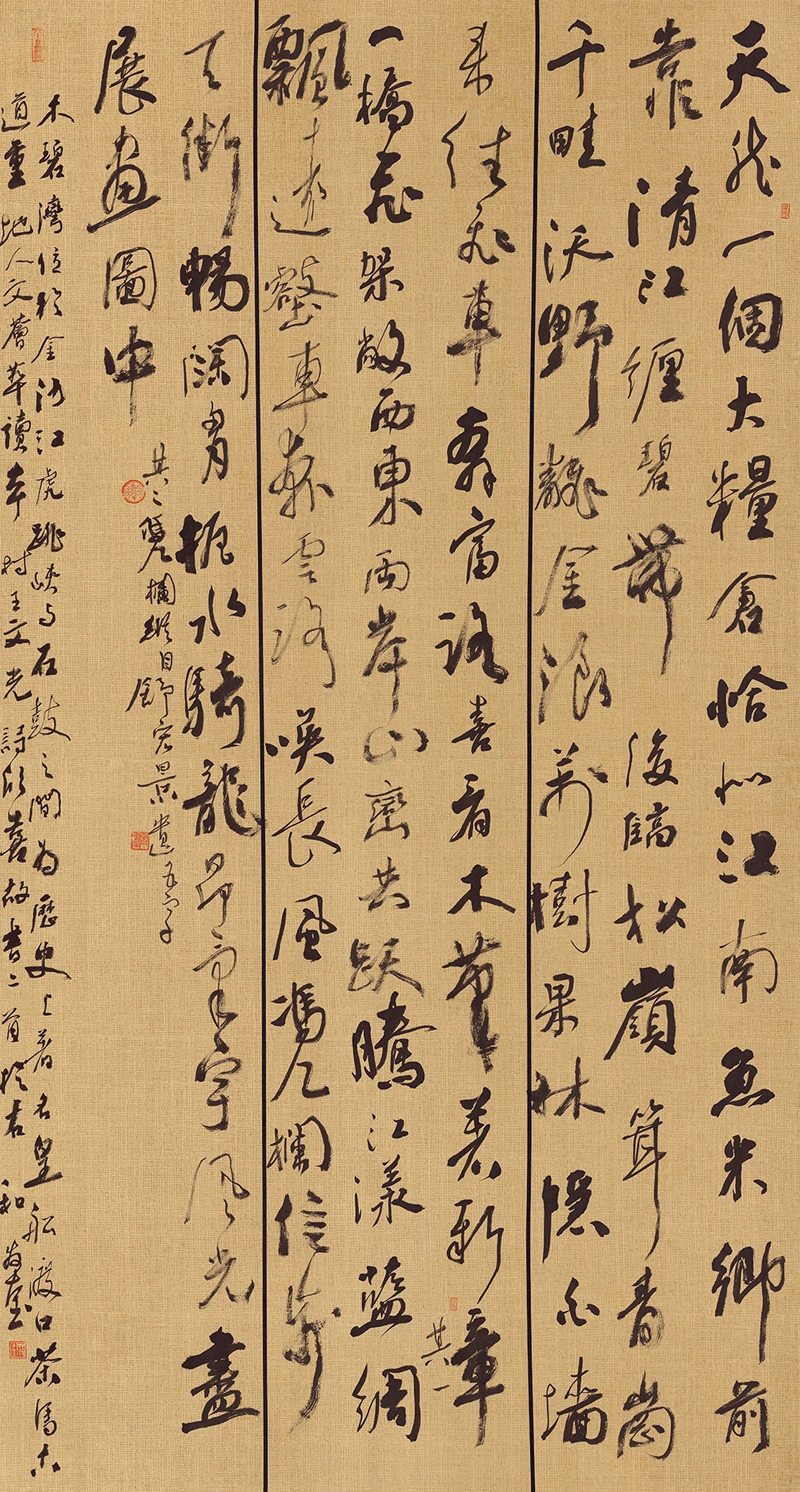 天然一個大糧倉恰似江南魚米鄉前
靠清江纏碧帶後臨松嶺聳青崗
千畦沃野翻金浪萬樹果林隱白墻
來往飛車奔富路喜看木筆著新章
其一
一橋飛架敞西東兩岸山巒共躍騰江漾藍綢
飄遠壑車奔雲路喚長風馮欄信步
天街暢闊胸扼水騎龍昂氣宇風光盡
展畫圖中
其二 欄縱目舒宏景遺五字
木碧灣位於金沙江虎跳峽與石鼓之間為歷史上著名皇船渡口茶馬古
道重地人文薈萃讀本村王文光詩欣喜故書二首於右 和